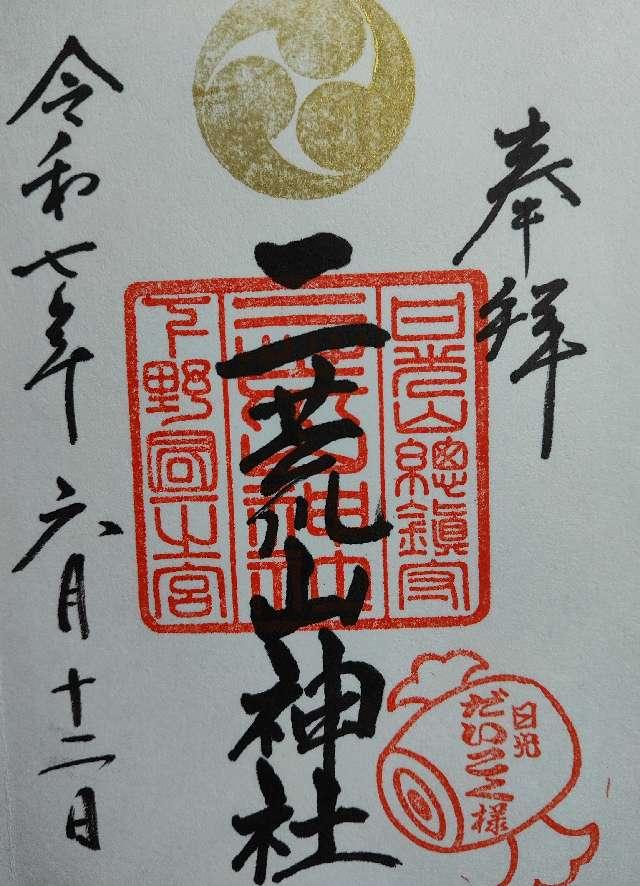 奉拝
日光山總鎮守
二荒山神社
二荒山神社
下野国一之宮
令和七年六月十二日
日光
だいこく様